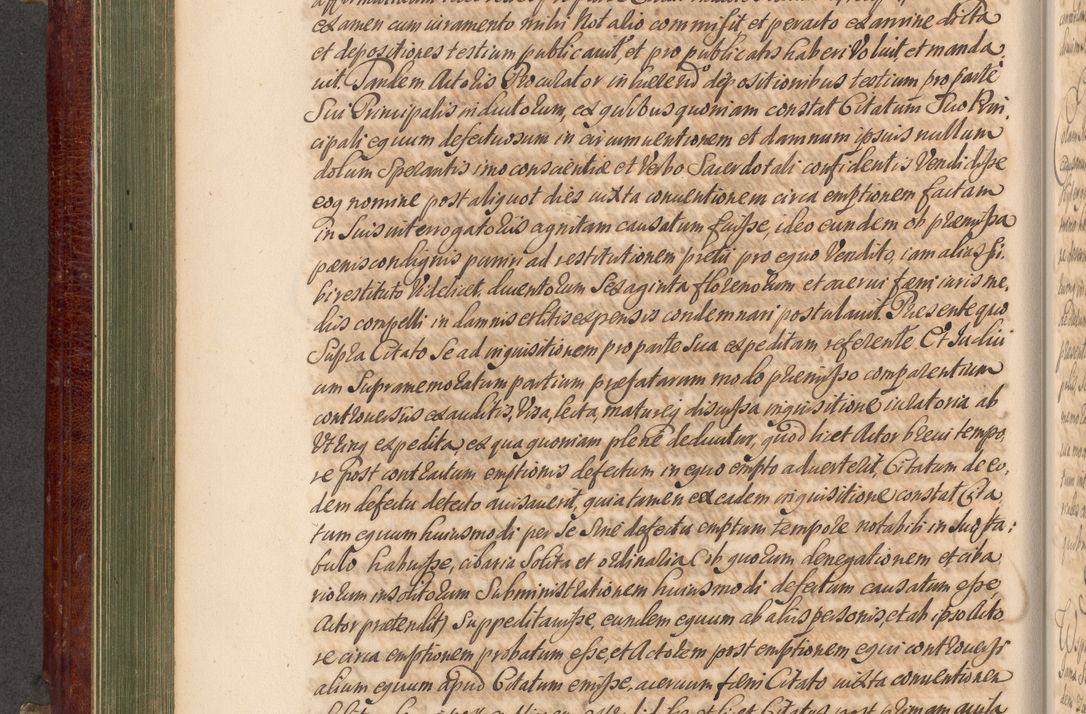 examen cum iuramento mihi Not alio commisit, et peracto examine dicta
et depositiones testium publicavit, et pro publicatis haberi voluit, et manda
vit. Tandem Actoris Procurator in hærendo depositionibus testium pro parte
Sui Principalis inductorum, ex quibus quoniam constat Citatum Suo Prin
cipali equum defectuosum in circumventionem et damnum ipsius nullum
dolum Sperantis imo conscientiæ et Verbo Sacerdotali confidentis Vendidisse
eoq nomine post aliquot dies iuxta conventionem circa emptionem factam
in Suis interrogatoriis agnitam causatum fuisse, ideo eundem ob præmissa
pænis condignis puniri ad restitutionem pretii pro equo Vendito, iam alias Si
bi restituto Videlicet ducentorum Sexaginta florenorum et acervi fæni iuris me,
diis compelli in damnis et litis expensis condemnari postulavit. Præsente quo
Supra Citato Se ad inquisitionem pro parte Sua expeditam referente. Et Iudici
um Supramemoratum partium præfatarum modo præmisso comparentium
controversiis exauditis, Visa, lecta, matureq discussa inquisitione iuratoria ab
Utrinq expedita, ex qua quoniam plene deducitur, quod licet Actor brevi tempo,
re post contractum emptionis defectum in equo empto adverterit, Citatum de eo,
dem defectu detecto avisaverit, quia tamen ex eadem inquisitione constat Cita
tum equum huiusmodi per Se Sine defectu emptum tempore notabili in Suo Sta:
bulo habuisse, cibaria Solita et ordinaria (ob quorum denegationem et ciba
riorum insolitorum Subministrationem huiusmodi defectum causatum esse,
Actor prætendit) Suppeditavisse, eundem equum ab aliis personis, et ab ipso Acto,
re circa emptionem probatum esse, et Actorem post emptionem equi controversi
alium equum apud Citatum emisse, acervum fæni Citato iuxta conventionem